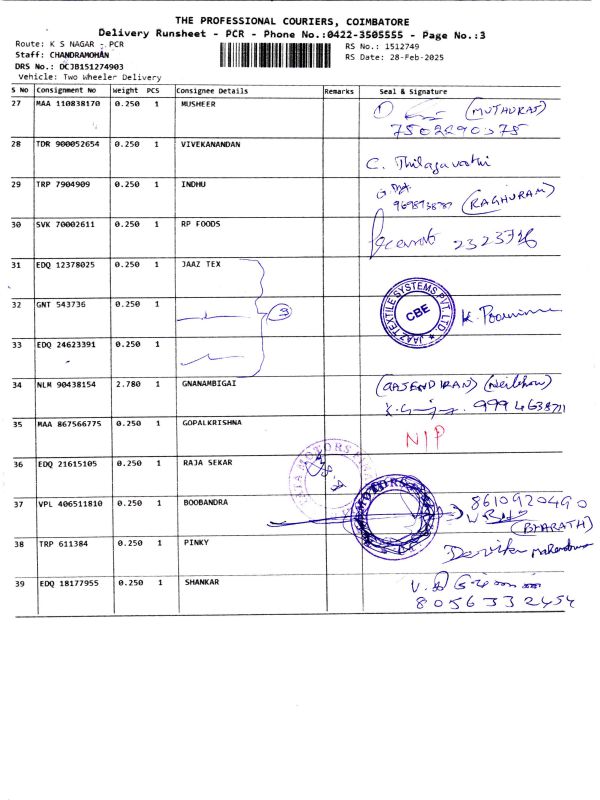 THE PROFESSIONAL COURIERS, COIMBATORE
Delivery Runsheet - PCR - Phone No.:0422-3505555 - Page No.:3
Route: K S NAGAR - PCR
RS No.: 1512749
Staff: CHANDRAMOHAN
RS Date: 28-Feb-2025
DRS No.: DCJB151274903
Vehicle: Two Wheeler Delivery
S No Consignment No Weight PCS Consignee Details Remarks Seal & Signature
27 MAA 110838170 0.250 1 MUSHEER (MUTHURAJ)
7502290375
28 TDR 900052654 0.250 1 VIVEKANANDAN
C. Thilagavathi
29 TRP 7904909 0.250 1 INDHU
(RAGHURAM)
30 SVK 70002611 0.250 1 RP FOODS
31 EDQ 12378025 0.250 1 JAAZ TEX
JAAZ TEXTILE SYSTEMS PVT. LTD.
CBE
32 GNT 543736 0.250 1
33 EDQ 24623391 0.250 1
34 NLM 90438154 2.780 1 GNANAMBIGAI
35 MAA 867566775 0.250 1 GOPALKRISHNA
N/P
36 EDQ 21615105 0.250 1 RAJA SEKAR
37 VPL 406511810 0.250 1 BOOBANDRA 8610920490
(BHARATH)
38 TRP 611384 0.250 1 PINKY
39 EDQ 18177955 0.250 1 SHANKAR
8056332454